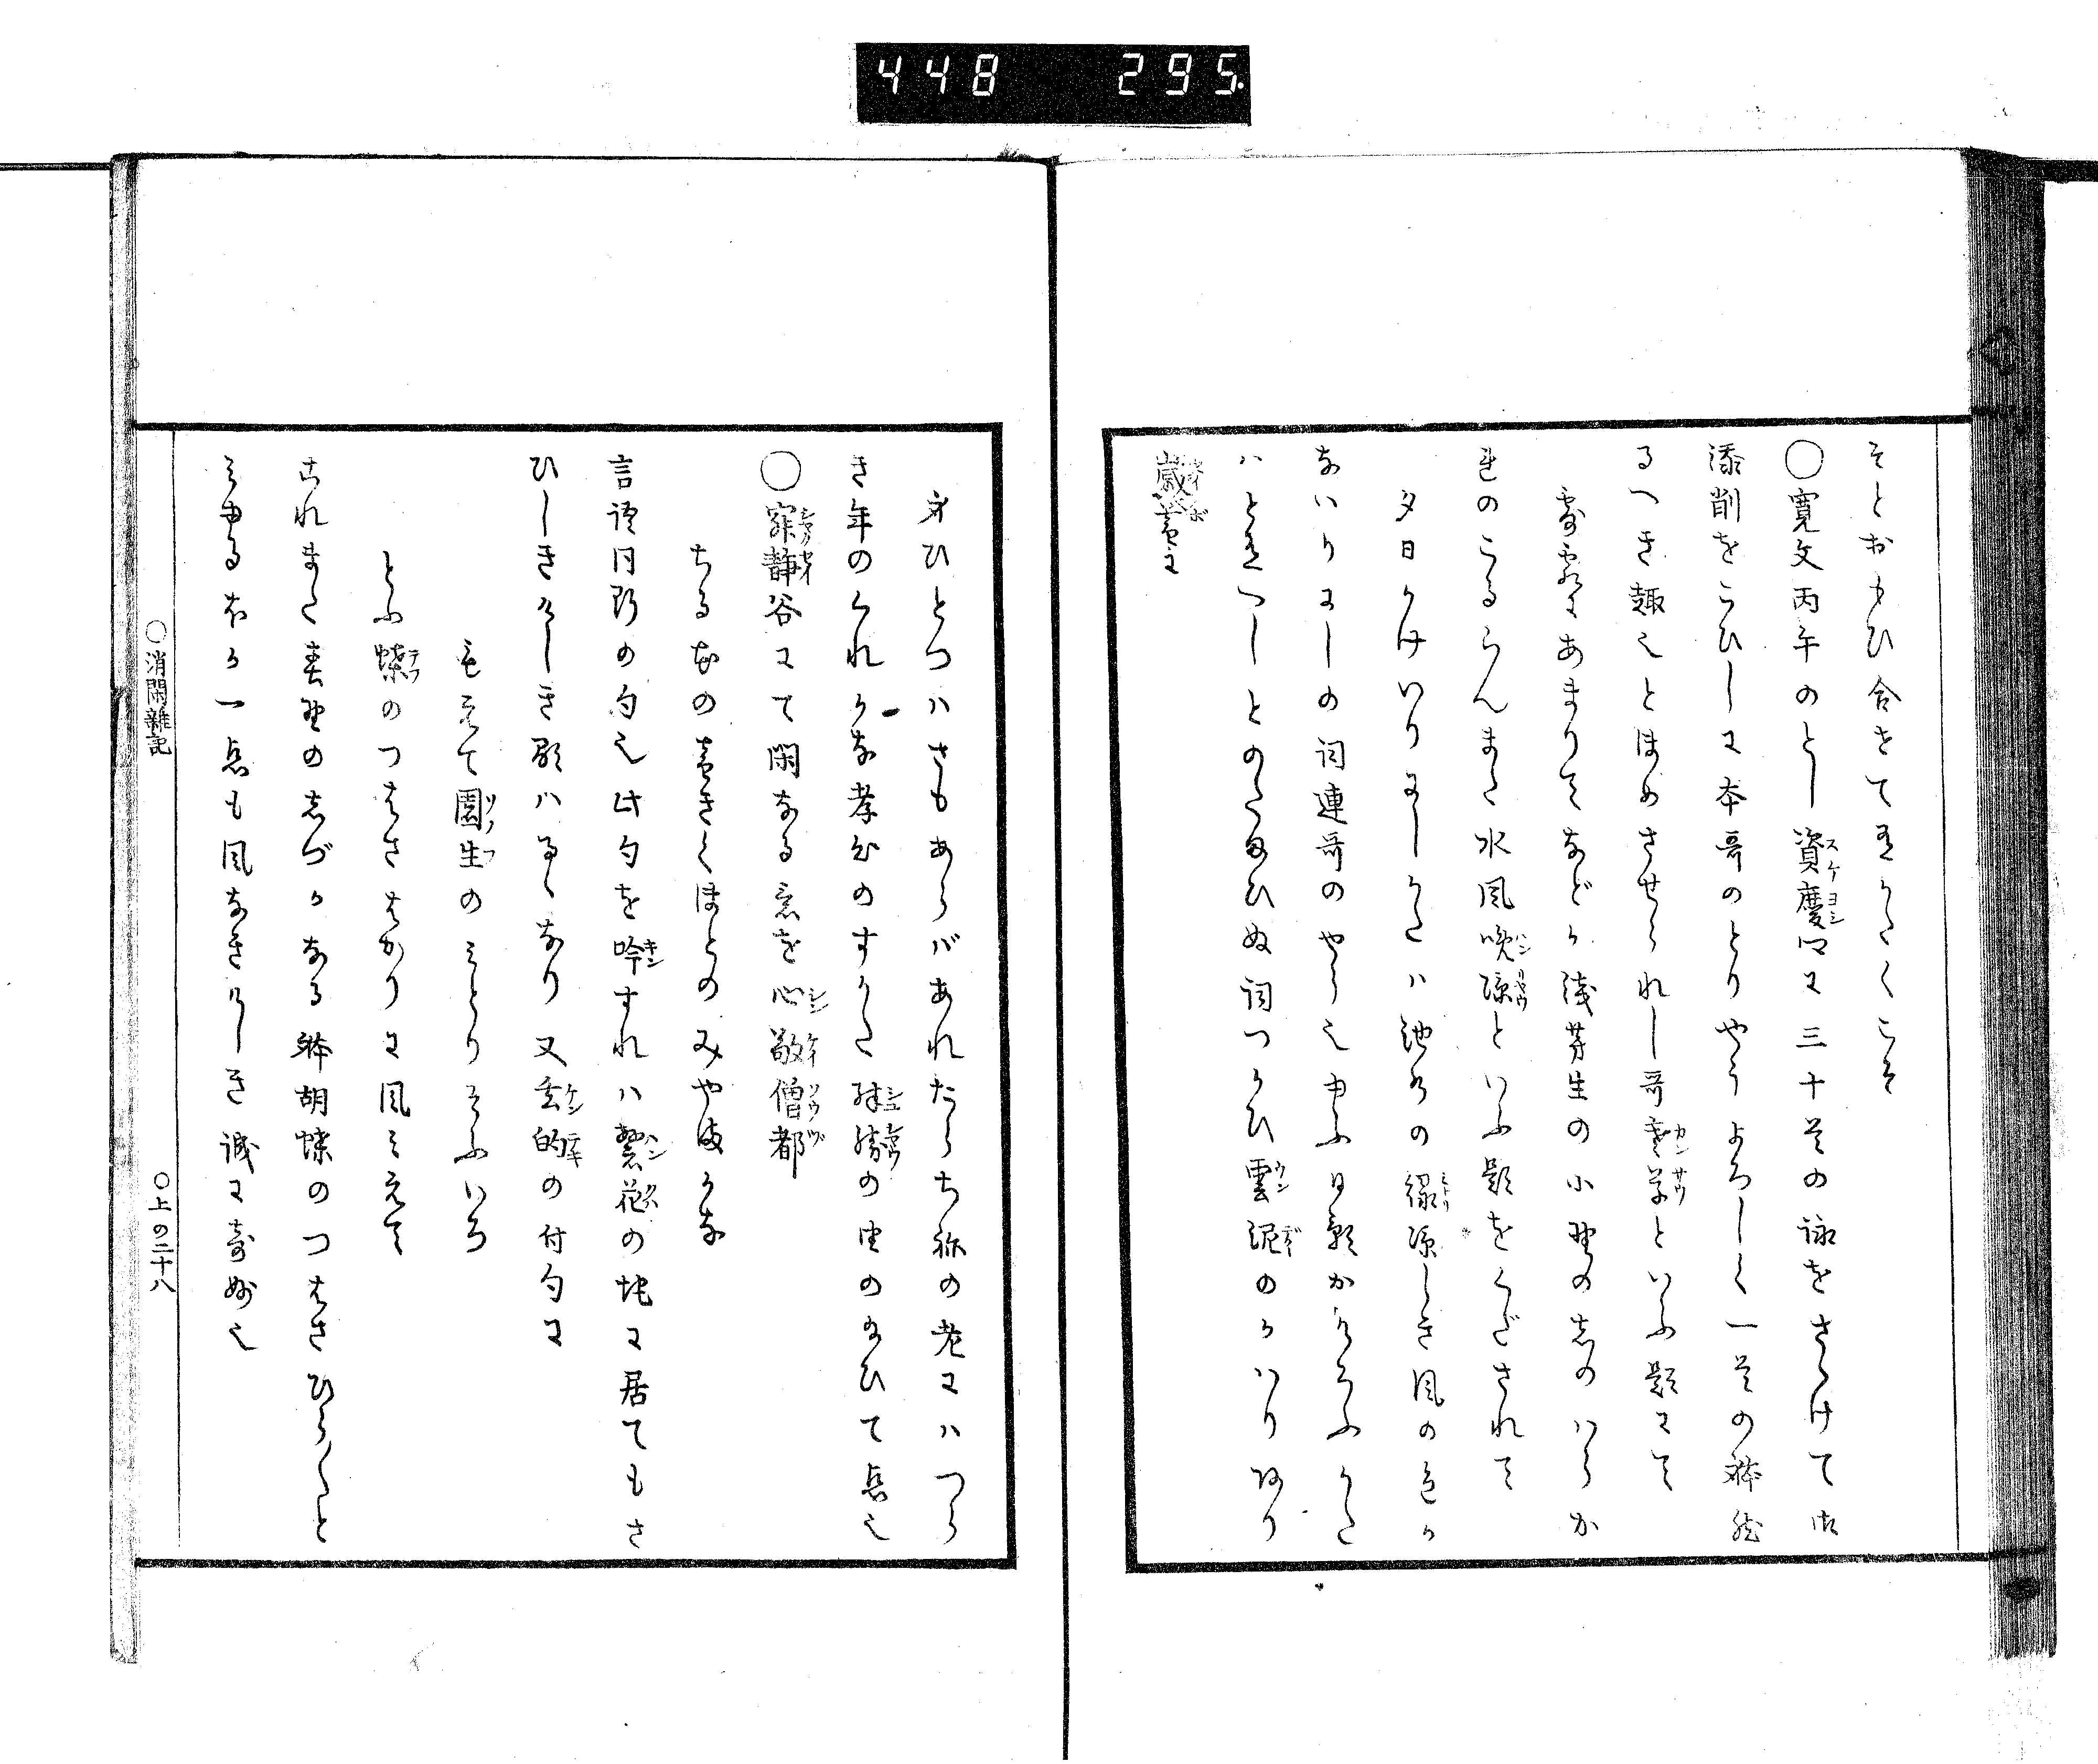 448 295
そとおもひ合せてをかしくこそ
〇寛文丙午のとし資慶卿に三十首の詠をさゝけて御
添削をこひしに本哥のとりやうよろしく一首の躰然
るへき趣也とほめさせられし哥寒草といふ題にて
霜雪にあまりてなどか浅茅生の小野のしのはらか
れのこるらんまた水風晩涼といふ題をくだされて
夕日かけいりにしかたは池水の緑涼しき風の色か
ないりにしの詞連哥のやう也申ふ日影かくろふかた
はときつしとのたまひぬ詞つかひ雲泥のかはりあり
歳暮に
身ひとつはさもあらバあれたらちねの老にハつら
き年のくれかな孝心のすかた殊勝の由のたまひて点也
〇寂静谷にて閑なる意を心敬僧都
ちる花の音きくほとのみやまかな
言語同断の句也此句を吟すれハ繁花の地に居てもさ
ひしきけしき顕ハるゝなり又玄的の付句に
もえて園生のみとりそふいろ
とふ蝶のつはさはかりに風みえて
これまた春野のしづかなる躰胡蝶のつはさひら〳〵と
みゆるほか一点も風なきけしき誠に奇妙也
〇消閑雑記
〇上の二十八